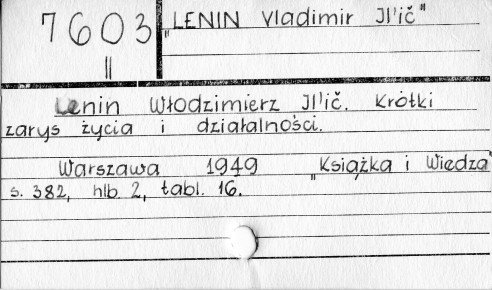 7603
||
„LENIN Vladimir Il'ič”
Lenin Włodzimierz Il'ič. Krótki
zarys życia i działalności.
Warszawa 1949 „Książka i Wiedza”
s. 382, nlb. 2, tabl. 16.